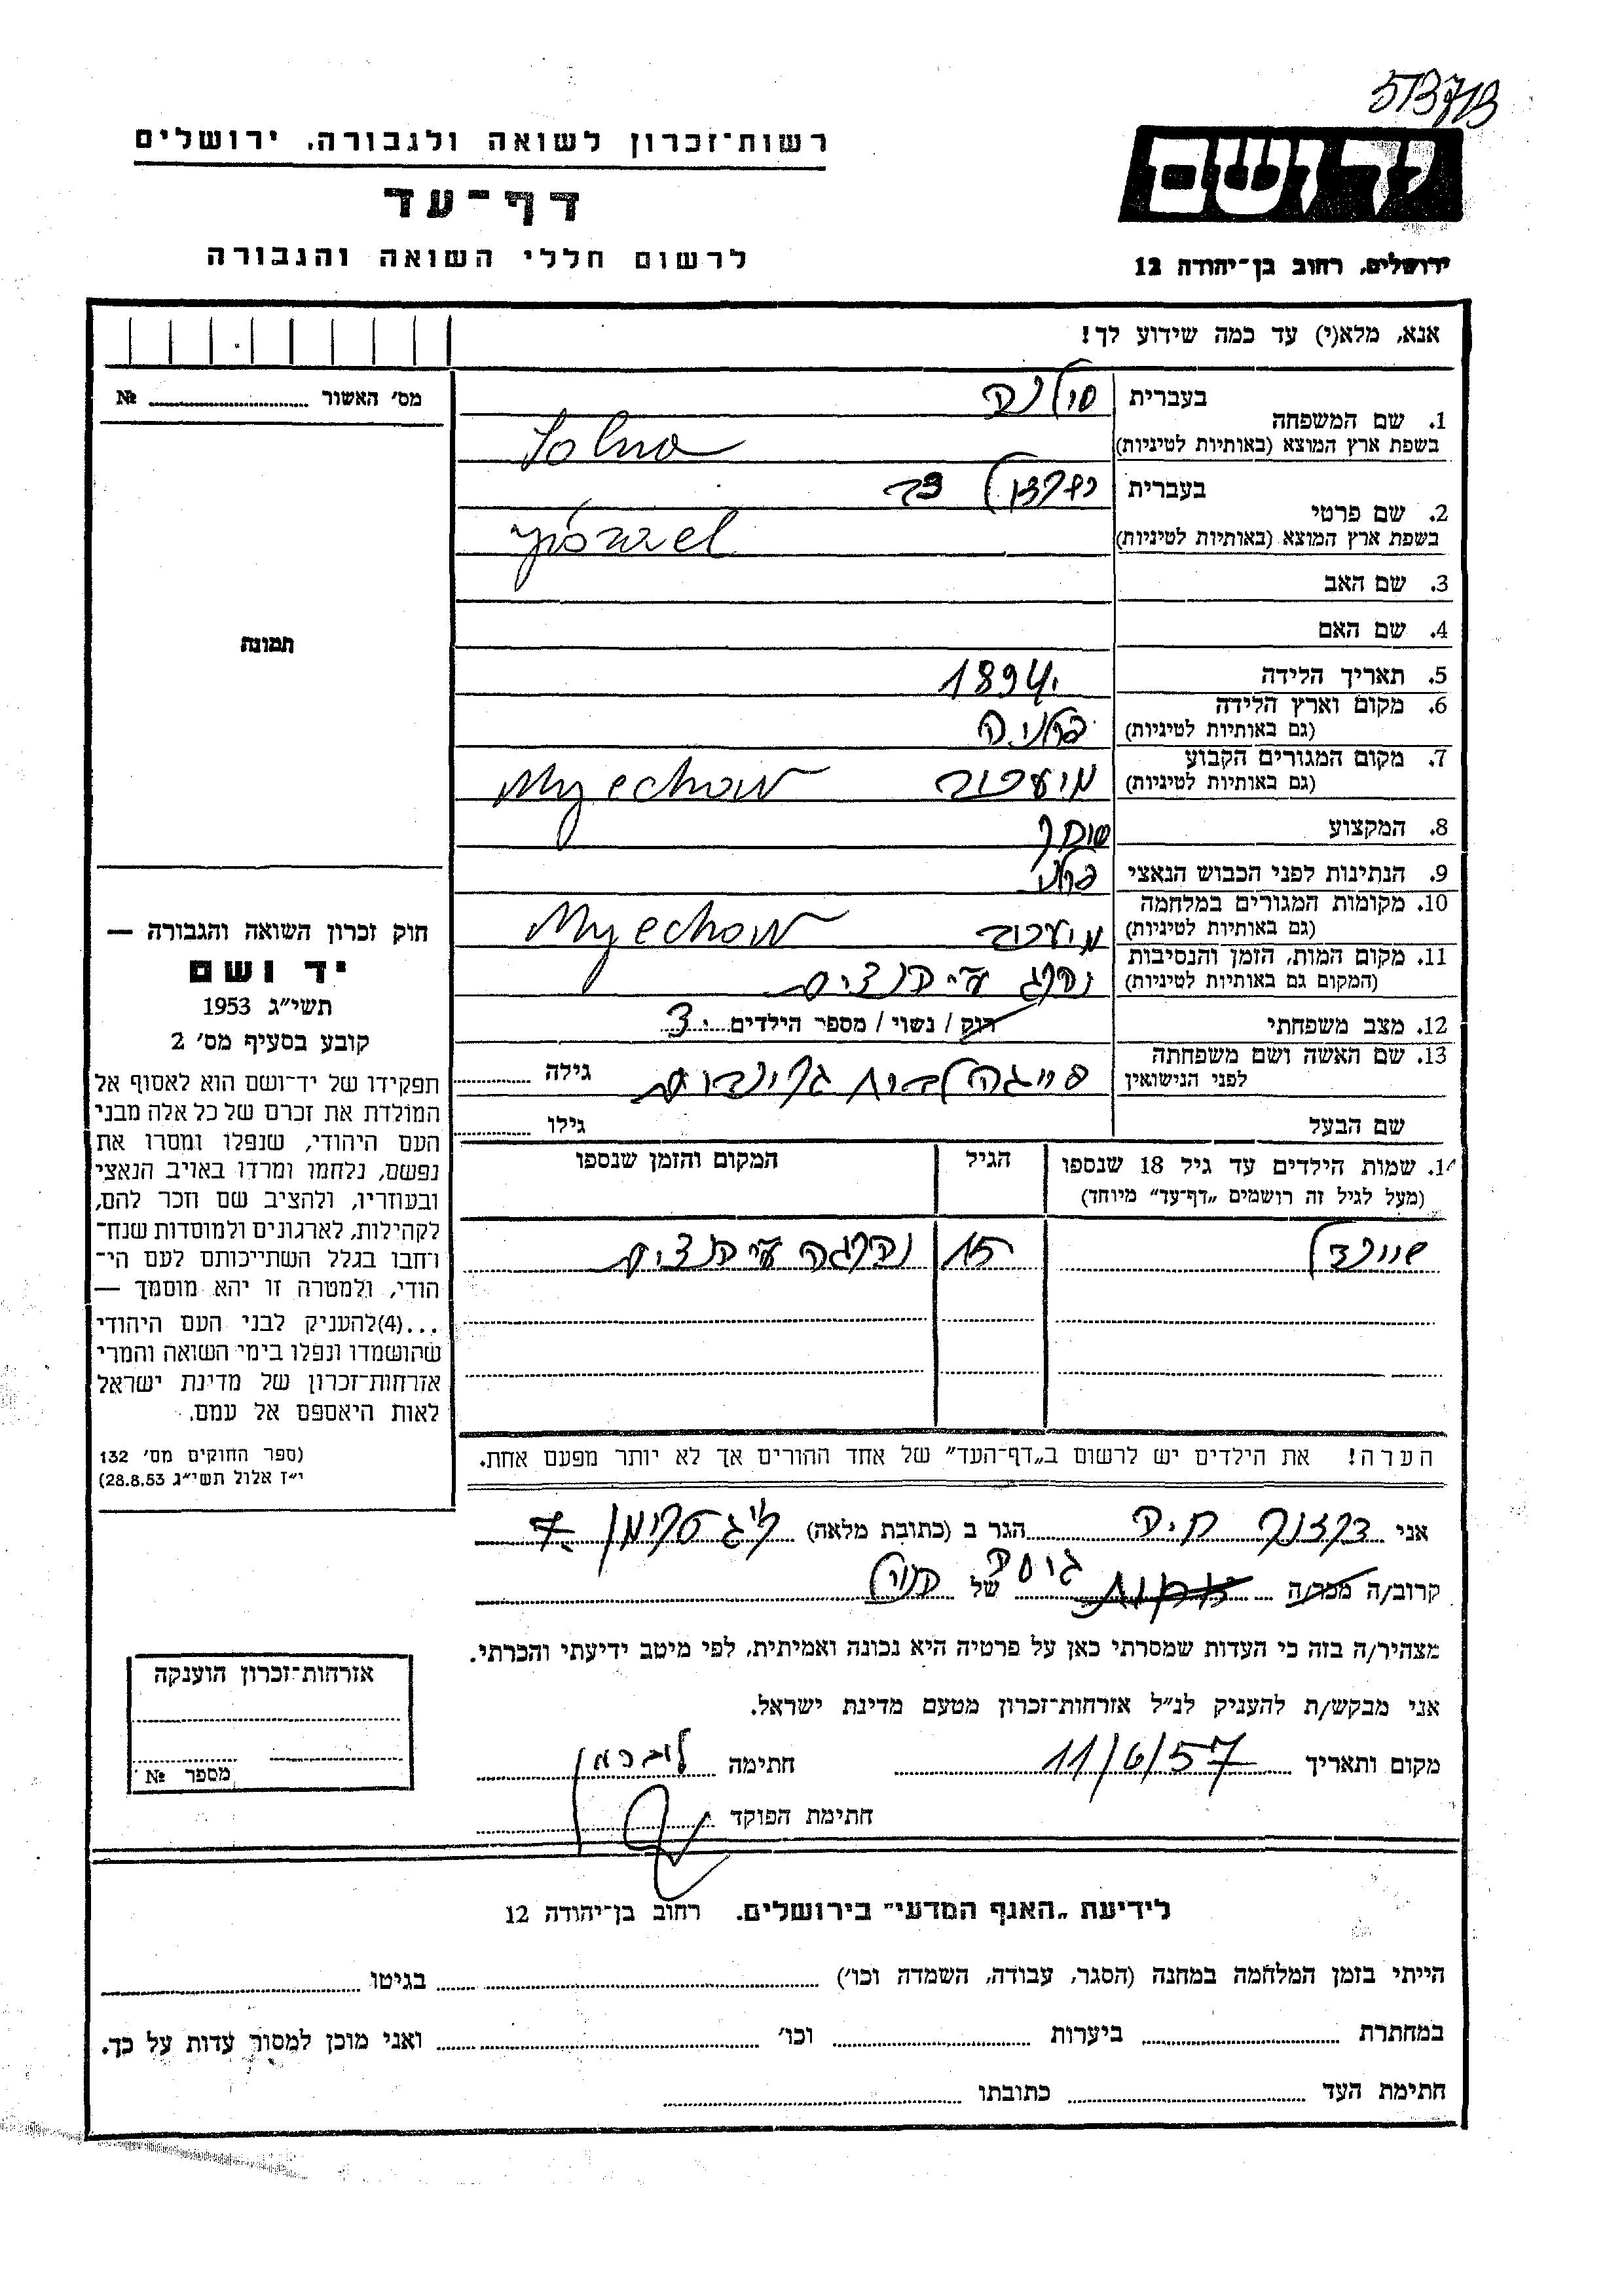 513713
רשות־זכרון לשואה ולגבורה, ירושלים
דף־עד
לרשום חללי השואה והגבורה
יד ושם
ירושלים, רחוב בן־יהודה 12
אנא, מלא(י) עד כמה שידוע לך!
מס׳ האשור № ....................
תמונה
1. שם המשפחה בעברית סולנה
בשפת ארץ המוצא (באותיות לטיניות) Solna
2. שם פרטי בעברית
בשפת ארץ המוצא (באותיות לטיניות)
3. שם האב
4. שם האם
5. תאריך הלידה 1894
6. מקום וארץ הלידה פולניה
(גם באותיות לטיניות)
7. מקום המגורים הקבוע מיעכוב Myechow
(גם באותיות לטיניות)
8. המקצוע סוחר
9. הנתינות לפני הכבוש הנאצי פולני
10. מקומות המגורים במלחמה מיעכוב Myechow
(גם באותיות לטיניות)
11. מקום המות, הזמן והנסיבות נהרג ע״י הנצים
(המקום גם באותיות לטיניות)
12. מצב משפחתי רווק / נשוי / מספר הילדים 3
13. שם האשה ושם משפחתה לפני הנישואין פייגה לבית גילה
שם הבעל גילו
14. שמות הילדים עד גיל 18 שנספו
(מעל לגיל זה רושמים „דף־עד״ מיוחד)
הגיל
המקום והזמן שנספו
שיינדל 15 נהרגה ע״י הנצים
הערה! את הילדים יש לרשום ב„דף־העד״ של אחד ההורים אך לא יותר מפעם אחת.
חוק זכרון השואה והגבורה —
יד ושם
תשי״ג 1953
קובע בסעיף מס׳ 2
תפקידו של יד־ושם הוא לאסוף אל
המולדת את זכרם של כל אלה מבני
העם היהודי, שנפלו ומסרו את
נפשם, נלחמו ומרדו באויב הנאצי
ובעוזריו, ולהציב שם וזכר להם,
לקהילות, לארגונים ולמוסדות שנח־
רבו בגלל השתייכותם לעם הי־
הודי, ולמטרה זו יהא מוסמך —
...(4)להעניק לבני העם היהודי
שהושמדו ונפלו בימי השואה והמרי
אזרחות־זכרון של מדינת ישראל
לאות היאספם אל עמם.
(ספר החוקים מס׳ 132
י״ז אלול תשי״ג 28.8.53)
אני חיה הגר ב (כתובת מלאה) 7
קרוב/ה מכר/ה גיסה של הנ״ל
מצהיר/ה בזה כי העדות שמסרתי כאן על פרטיה היא נכונה ואמיתית, לפי מיטב ידיעתי והכרתי.
אני מבקש/ת להעניק לנ״ל אזרחות־זכרון מטעם מדינת ישראל.
מקום ותאריך 11/6/57 חתימה
חתימת הפוקד
אזרחות־זכרון הוענקה
מספר №
לידיעת „האגף המדעי״ בירושלים, רחוב בן־יהודה 12
הייתי בזמן המלחמה במחנה (הסגר, עבודה, השמדה וכו׳) בגיטו
במחתרת ביערות וכו׳ ואני מוכן למסור עדות על כך.
חתימת העד כתובתו